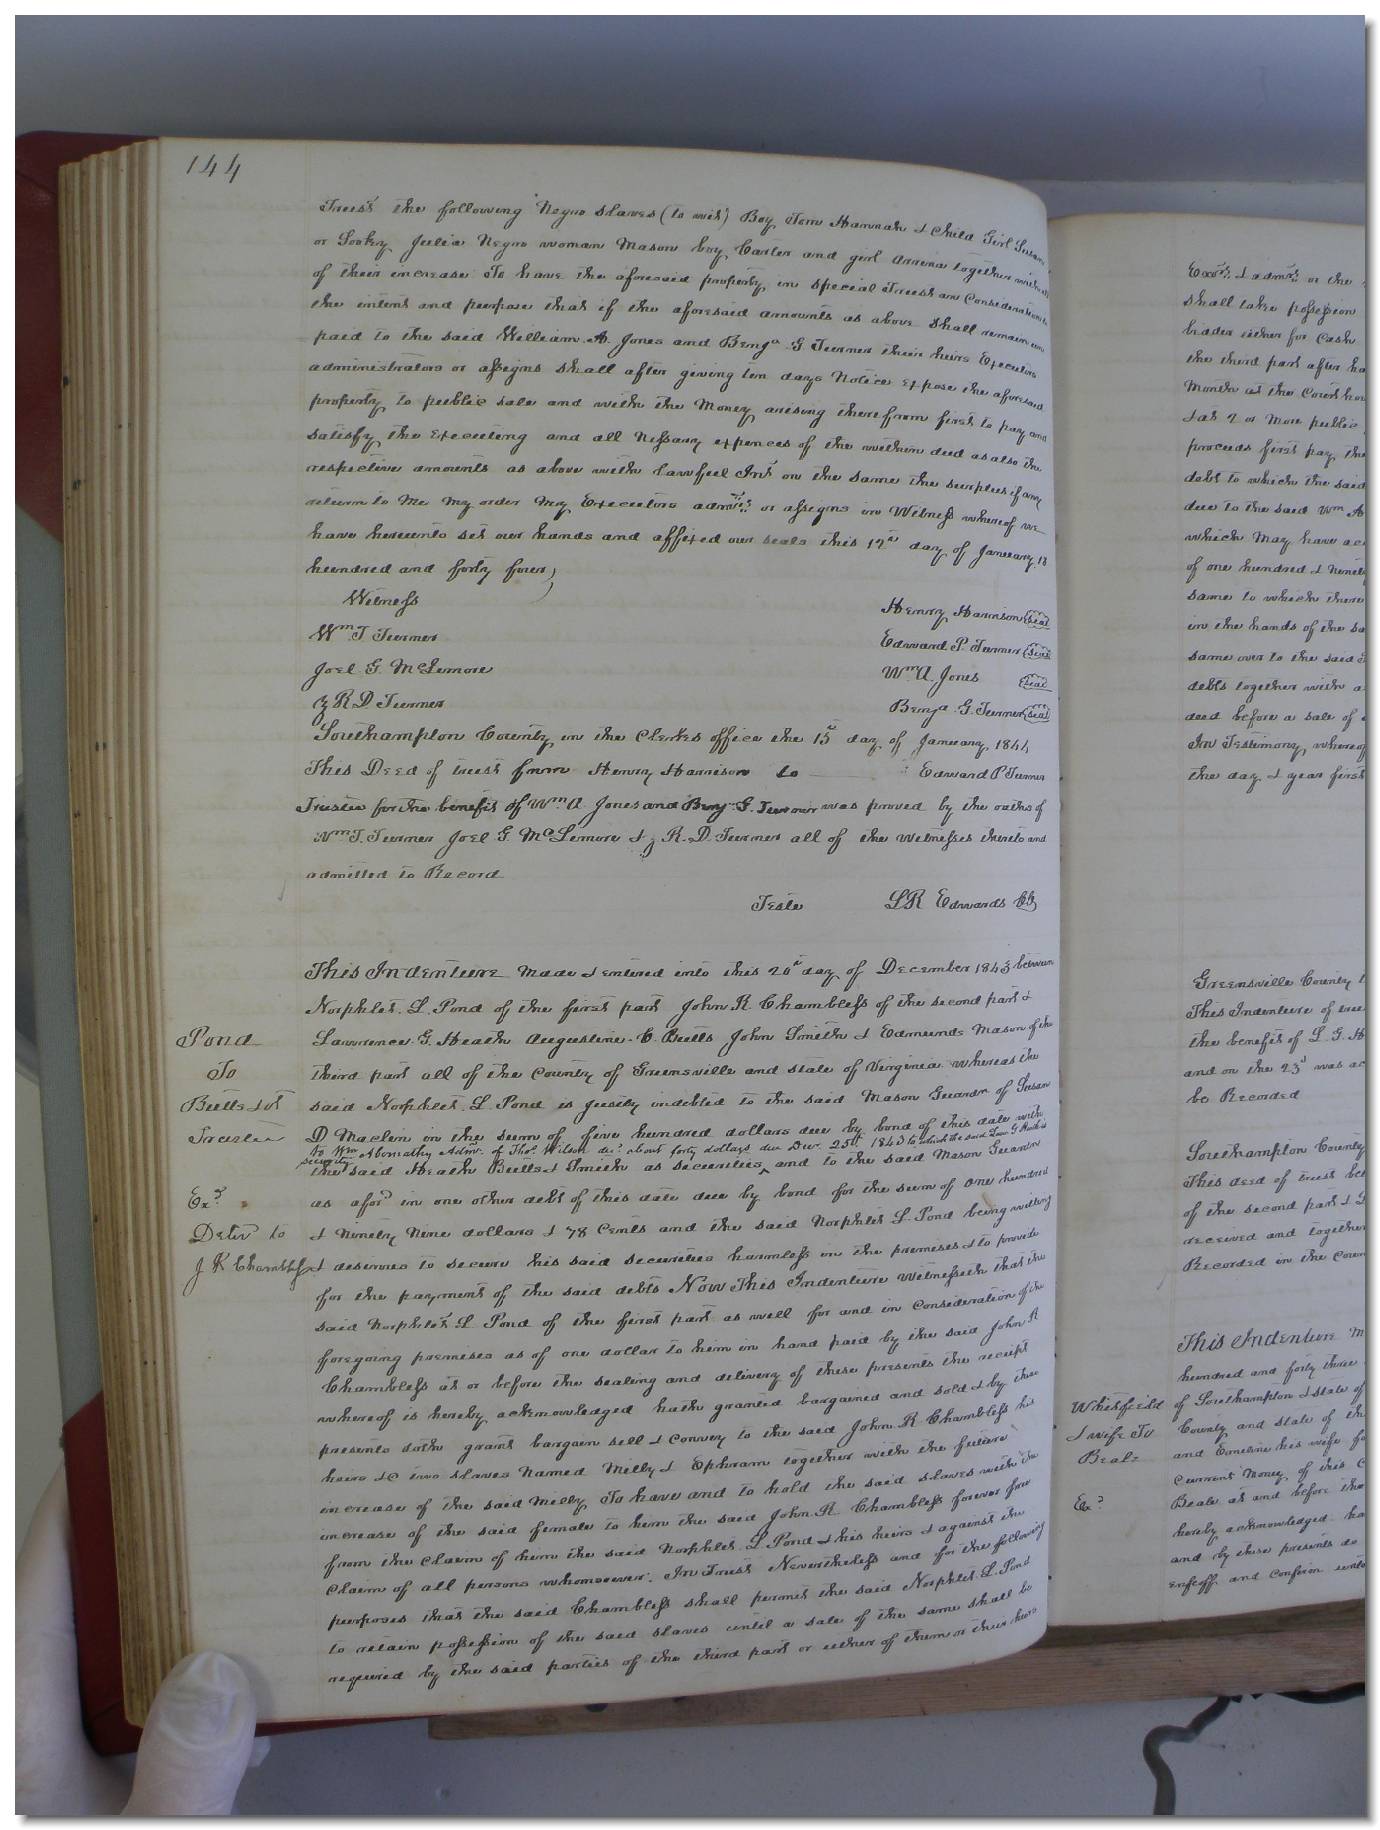 144
Trust the following Negro slaves (to wit) Boy Tom Hannah & Child Girl Susan
or Sooky Julia Negro woman Mason boy Carter and girl Arrena together with all
of their increase To have the aforesaid property in special Trust and Consideration to
the intent and purpose that if the aforesaid amounts as above shall remain un
paid to the said William A. Jones and Benja. G Turner their heirs Executors
administrators or assigns shall after giving ten days Notice expose the aforesaid
property to public sale and with the Money arising therefrom first to pay and
satisfy the Executing and all Nessary expences of the within deed as also the
respective amounts as above with lawfuel Int on the same the surplus if any
return to Me my order my Executors admrs or assigns in Witness whereof we
have hereunto set our hands and affixed our seals this 12th day of January 18
hundred and forty four
Witness
Henry Harrison seal
Wm T Turner
Edward P. Turner seal
Joel G. McLemore
Wm A. Jones seal
& R D Turner
Benja. G. Turner seal
Southampton County in the Clerks office the 15th day of January 1844
This Deed of trust from Henry Harrison to Edward P Turner
Trustee for the benefit of Wm A Jones and Benj G. Turner was proved by the oaths of
Wm T. Turner Joel G. McLemore & R. D. Turner all of the Witnesses thereto and
admitted to Record
Teste L R Edwards CC
This Indenture Made & entered into this 20th day of December 1843 between
Norphlet. L. Pond of the first part John R. Chambless of the second part &
Pond
Lawrence. G. Heath Augustine. C. Butts John Smith & Edmunds Mason of the
To
third part all of the County of Greensville and state of Virginia whereas the
Butts &c
said Norphlet. L Pond is justly indebted to the said Mason Guardn of Susan
Trustee
D Maclin in the sum of five hundred dollars due by bond of this date with
to Wm Abernathy Admr. of Thos. Wilson dec. about forty dollars due Dec. 25th 1843 to which the said Law. G Heath is
security
the said Heath Butts & Smith as securities, and to the said Mason Guardn
Exd.
as aford in one other debt of this date due by bond for the sum of One hundred
Delivd to
& Ninety Nine dollars & 78 Cents and the said Norphlet L. Pond being willing
J R Chambless
& desirous to secure his said securities harmless in the premises & to provide
for the payment of the said debts Now This Indenture Witnesseth that the
said Norphlet L Pond of the first part as well for and in Consideration of the
foregoing premises as of one dollar to him in hand paid by the said John R
Chambless at or before the sealing and delivery of these presents the receipt
whereof is hereby acknowledged hath granted bargained and sold & by these
presents doth grant bargain sell & Convey to the said John R Chambless his
heirs &c two slaves Named Milly & Ephram together with the future
increase of the said Milly To have and to hold the said slaves with the
increase of the said female to him the said John R Chambless forever free
from the Claim of him the said Norphlet L Pond & his heirs & against the
Claim of all persons whomsoever. In Trust Nevertheless and for the following
purposes that the said Chambless shall permit the said Norphlet. L. Pond
to retain possession of the said slaves until a sale of the same shall be
required by the said parties of the third part or either of them or their heirs
Exors. & admrs. or the
shall take possession
bidder either for Cash
the third part after ha
Month at the Court hou
& at 2 or More public
proceeds first pay the
debt to which the said
due to the said Wm A
which May have ac
of one hundred & Ninety
same to which there
in the hands of the sa
same over to the said
debts together with a
deed before a sale of
In Testimony whereof
the day & year first
Greensville County
This Indenture of trus
the benefit of L. G. H
and on the 23d was ac
be Recorded
Southampton County
This deed of trust bet
of the second part & L
received and together
Recorded in the Coun
This Indenture M
hundred and forty three
Whitfield
of Southampton & state of
& wife To
County and state of the
Beale
and Emeline his wife fo
Current Money of this C
Exd.
Beale at and before the
hereby acknowledged ha
and by these presents do
enfeoff and confirm unto